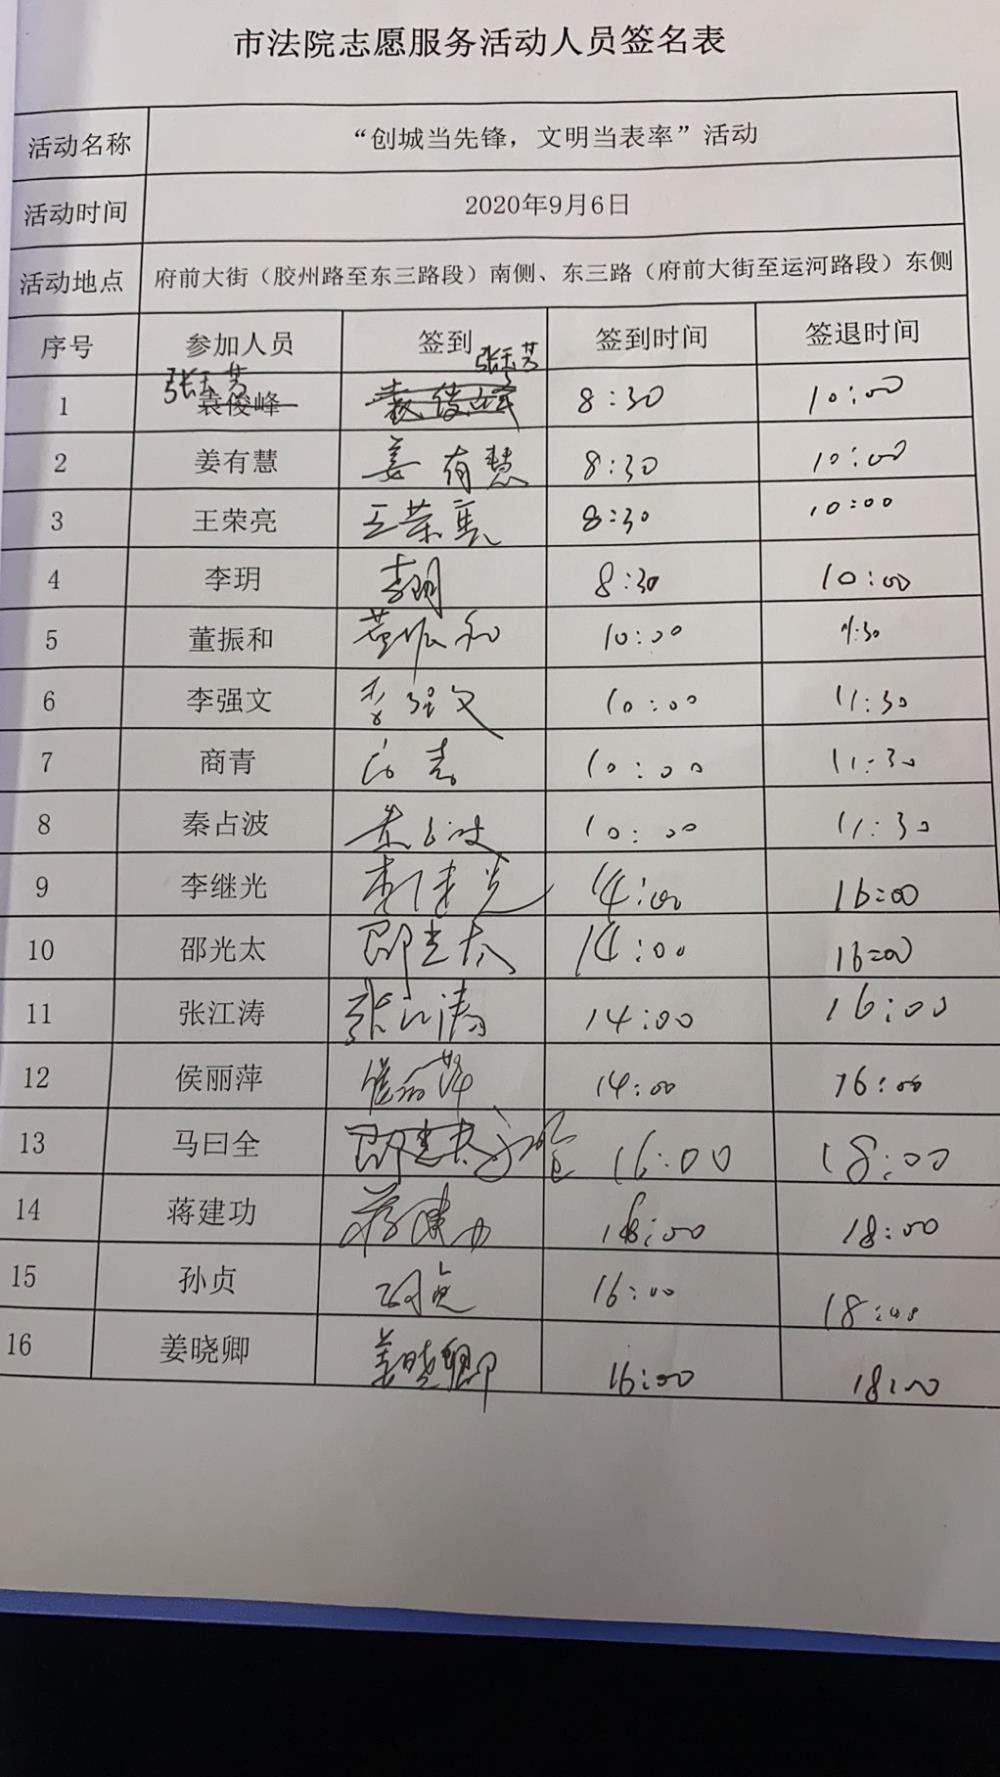 市法院志愿服务活动人员签名表
活动名称 “创城当先锋，文明当表率”活动
活动时间 2020年9月6日
活动地点 府前大街（胶州路至东三路段）南侧、东三路（府前大街至运河路段）东侧
序号 参加人员 签到 签到时间 签退时间
张玉芳 张玉芳
1 袁俊峰 袁俊峰 8:30 10:00
2 姜有慧 姜有慧 8:30 10:00
3 王荣亮 王荣亮 8:30 10:00
4 李玥 李玥 8:30 10:00
5 董振和 董振和 10:00 11:30
6 李强文 李强文 10:00 11:30
7 商青 商青 10:00 11:30
8 秦占波 秦占波 10:00 11:30
9 李继光 李继光 14:00 16:00
10 邵光太 邵光太 14:00 16:00
11 张江涛 张江涛 14:00 16:00
12 侯丽萍 侯丽萍 14:00 16:00
13 马曰全 邵光太 马曰全 16:00 18:00
14 蒋建功 蒋建功 16:00 18:00
15 孙贞 孙贞 16:00 18:00
16 姜晓卿 姜晓卿 16:00 18:00